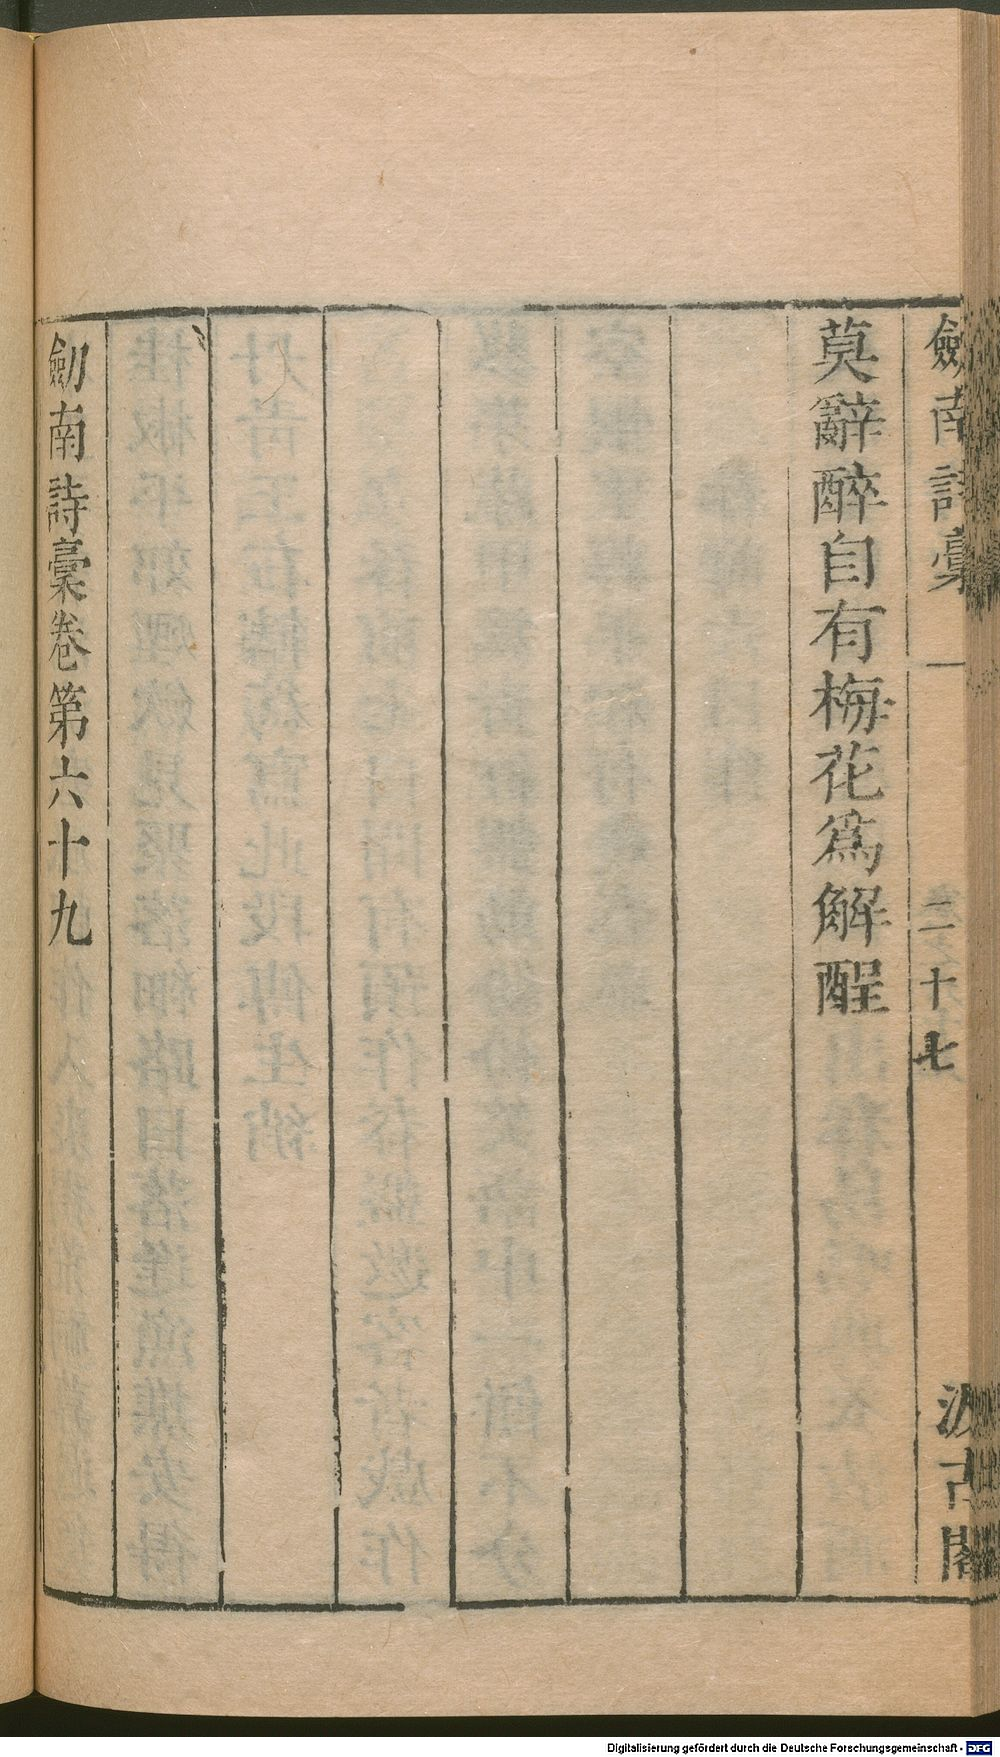 劍南詩稾 一 二十七 汲古閣
莫辭醉自有梅花爲解酲
劍南詩稾卷第六十九
Digitalisierung gefördert durch die Deutsche Forschungsgemeinschaft - DFG